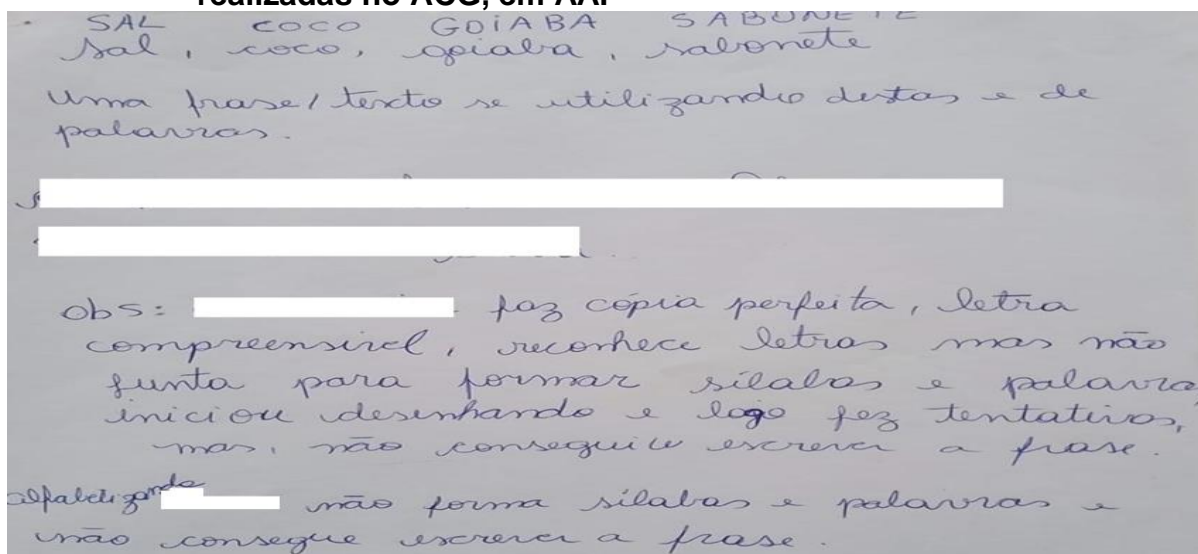 realizadas no ACG, em AAP
SAL COCO GOIABA SABONETE
Sal, coco, goiaba, sabonete
Uma frase/texto se utilizando destas e de
palavras.
obs: faz cópia perfeita, letra
compreensivel, reconhece letras mas não
junta para formar sílabas e palavra
iniciou desenhando e logo fez tentativas,
mas, não conseguiu escrever a frase.
alfabetizando não forma sílabas e palavras e
não consegue escrever a frase.